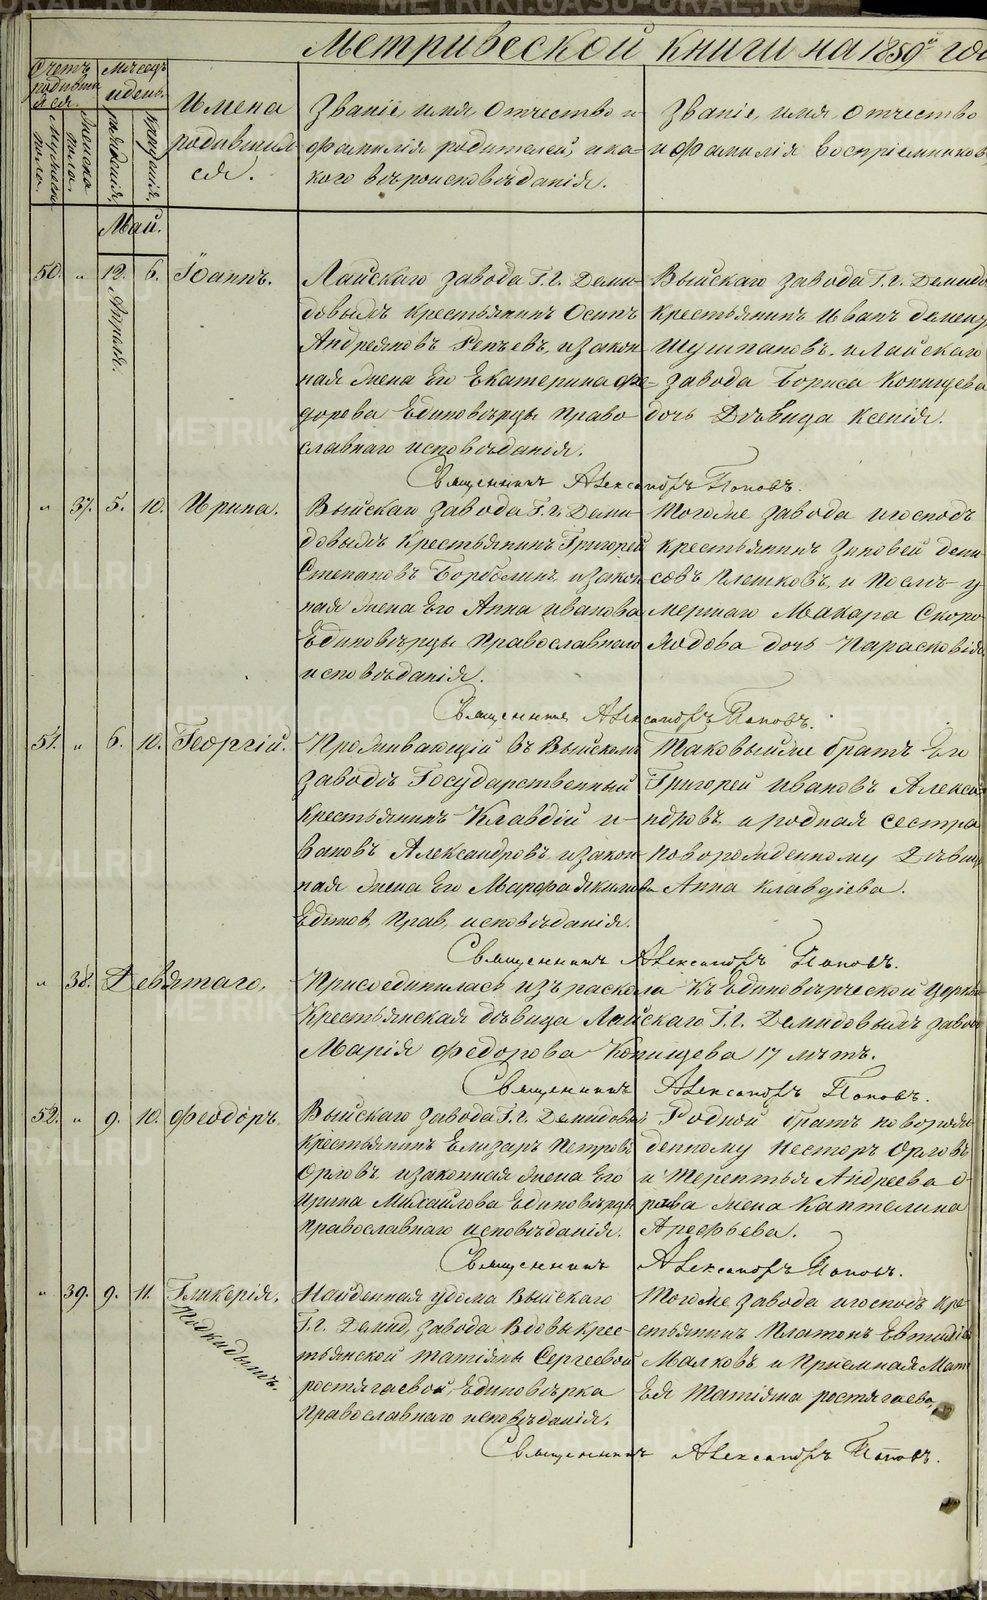 Метрической книги на 1859й го
Счетъ родившихся.
Мѣсяцъ и день.
Имена родившихся.
Званіе, имя, отчество и фамилія родителей, и какого вѣроисповѣданія.
Званіе, имя, отчество и фамилія воспріемниковъ
Мужеска пола.
Женска пола.
рожденія,
крещенія,
Май.
50. " 12. Апрѣля. 6. Іоаннъ.
Лайскаго завода Г.г. Деми-
довыхъ крестьянинъ Осипъ
Андреяновъ Репьевъ, и закон-
ная жена его Екатерина Фе-
дорова Единовѣрцы Право-
славнаго исповѣданія.
Выйскаго завода Г.г. Демидо
крестьянинъ Иванъ
Шушпановъ, и Лайскаго
завода Бориса Копищева
дочь Дѣвица Ксенія.
Священникъ Александръ Поповъ.
" 37. 5. 10. Ирина.
Выйскаго завода Г.г. Деми-
довыхъ крестьянинъ Григорей
Степановъ и закон-
ная жена его Анна Иванова
Единовѣрцы Православнаго
исповѣданія.
Тогоже завода и господъ
крестьянинъ Зиновей Дени-
совъ Плешковъ, и Послѣ у-
мершаго Макара Скоро
ходова дочь Парасковія
Священникъ Александръ Поповъ.
51. " 6. 10. Георгій.
Проживающій въ Выйскомъ
заводѣ Государственный
крестьянинъ Клавдій И-
вановъ Александровъ, и закон-
ная жена его Марфа Якимова
Единов, Прав, исповѣданія.
Таковыйже братъ Его
Григорей Ивановъ Алекса
ндровъ, и родная сестра
новорожденному Дѣвица
Анна Клавдіева.
Священникъ Александръ Поповъ.
" 38. Девятаго,
Присоединилась изъ раскола къ Единовѣрческой церкви
крестьянская дѣвица Лайскаго Г.г. Демидовыхъ завода
Марія Федорова Копищева 17 лѣтъ.
Священникъ Александръ Поповъ.
52. " 9. 10. Феодоръ.
Выйскаго завода Г.г. Демидовыхъ
крестьянинъ Елизаръ Петровъ
Орловъ, и законная жена его
Ирина Михайлова Единовѣрцы
Православнаго исповѣданія.
Родной братъ новорож
денному Несторъ Орловъ
и Терентья Андреева О-
рлова жена Каптелина
Арефьева.
Священникъ Александръ Поповъ.
" 39. 9. 11. Гликерія.
Подкидышъ.
Найденная у дома Выйскаго
Г.г. Демид, завода Вдовы крес-
тьянской Татіяны Сергеевой
ростягаевой, Единовѣрка
Православнаго исповѣданія.
Тогоже завода и господъ кре
стьянинъ Платонъ
Малковъ и Приемная Мать
Ея Татіяна ростягаева,
Священникъ Александръ Поповъ.
METRIKI.GASO-URAL.RU